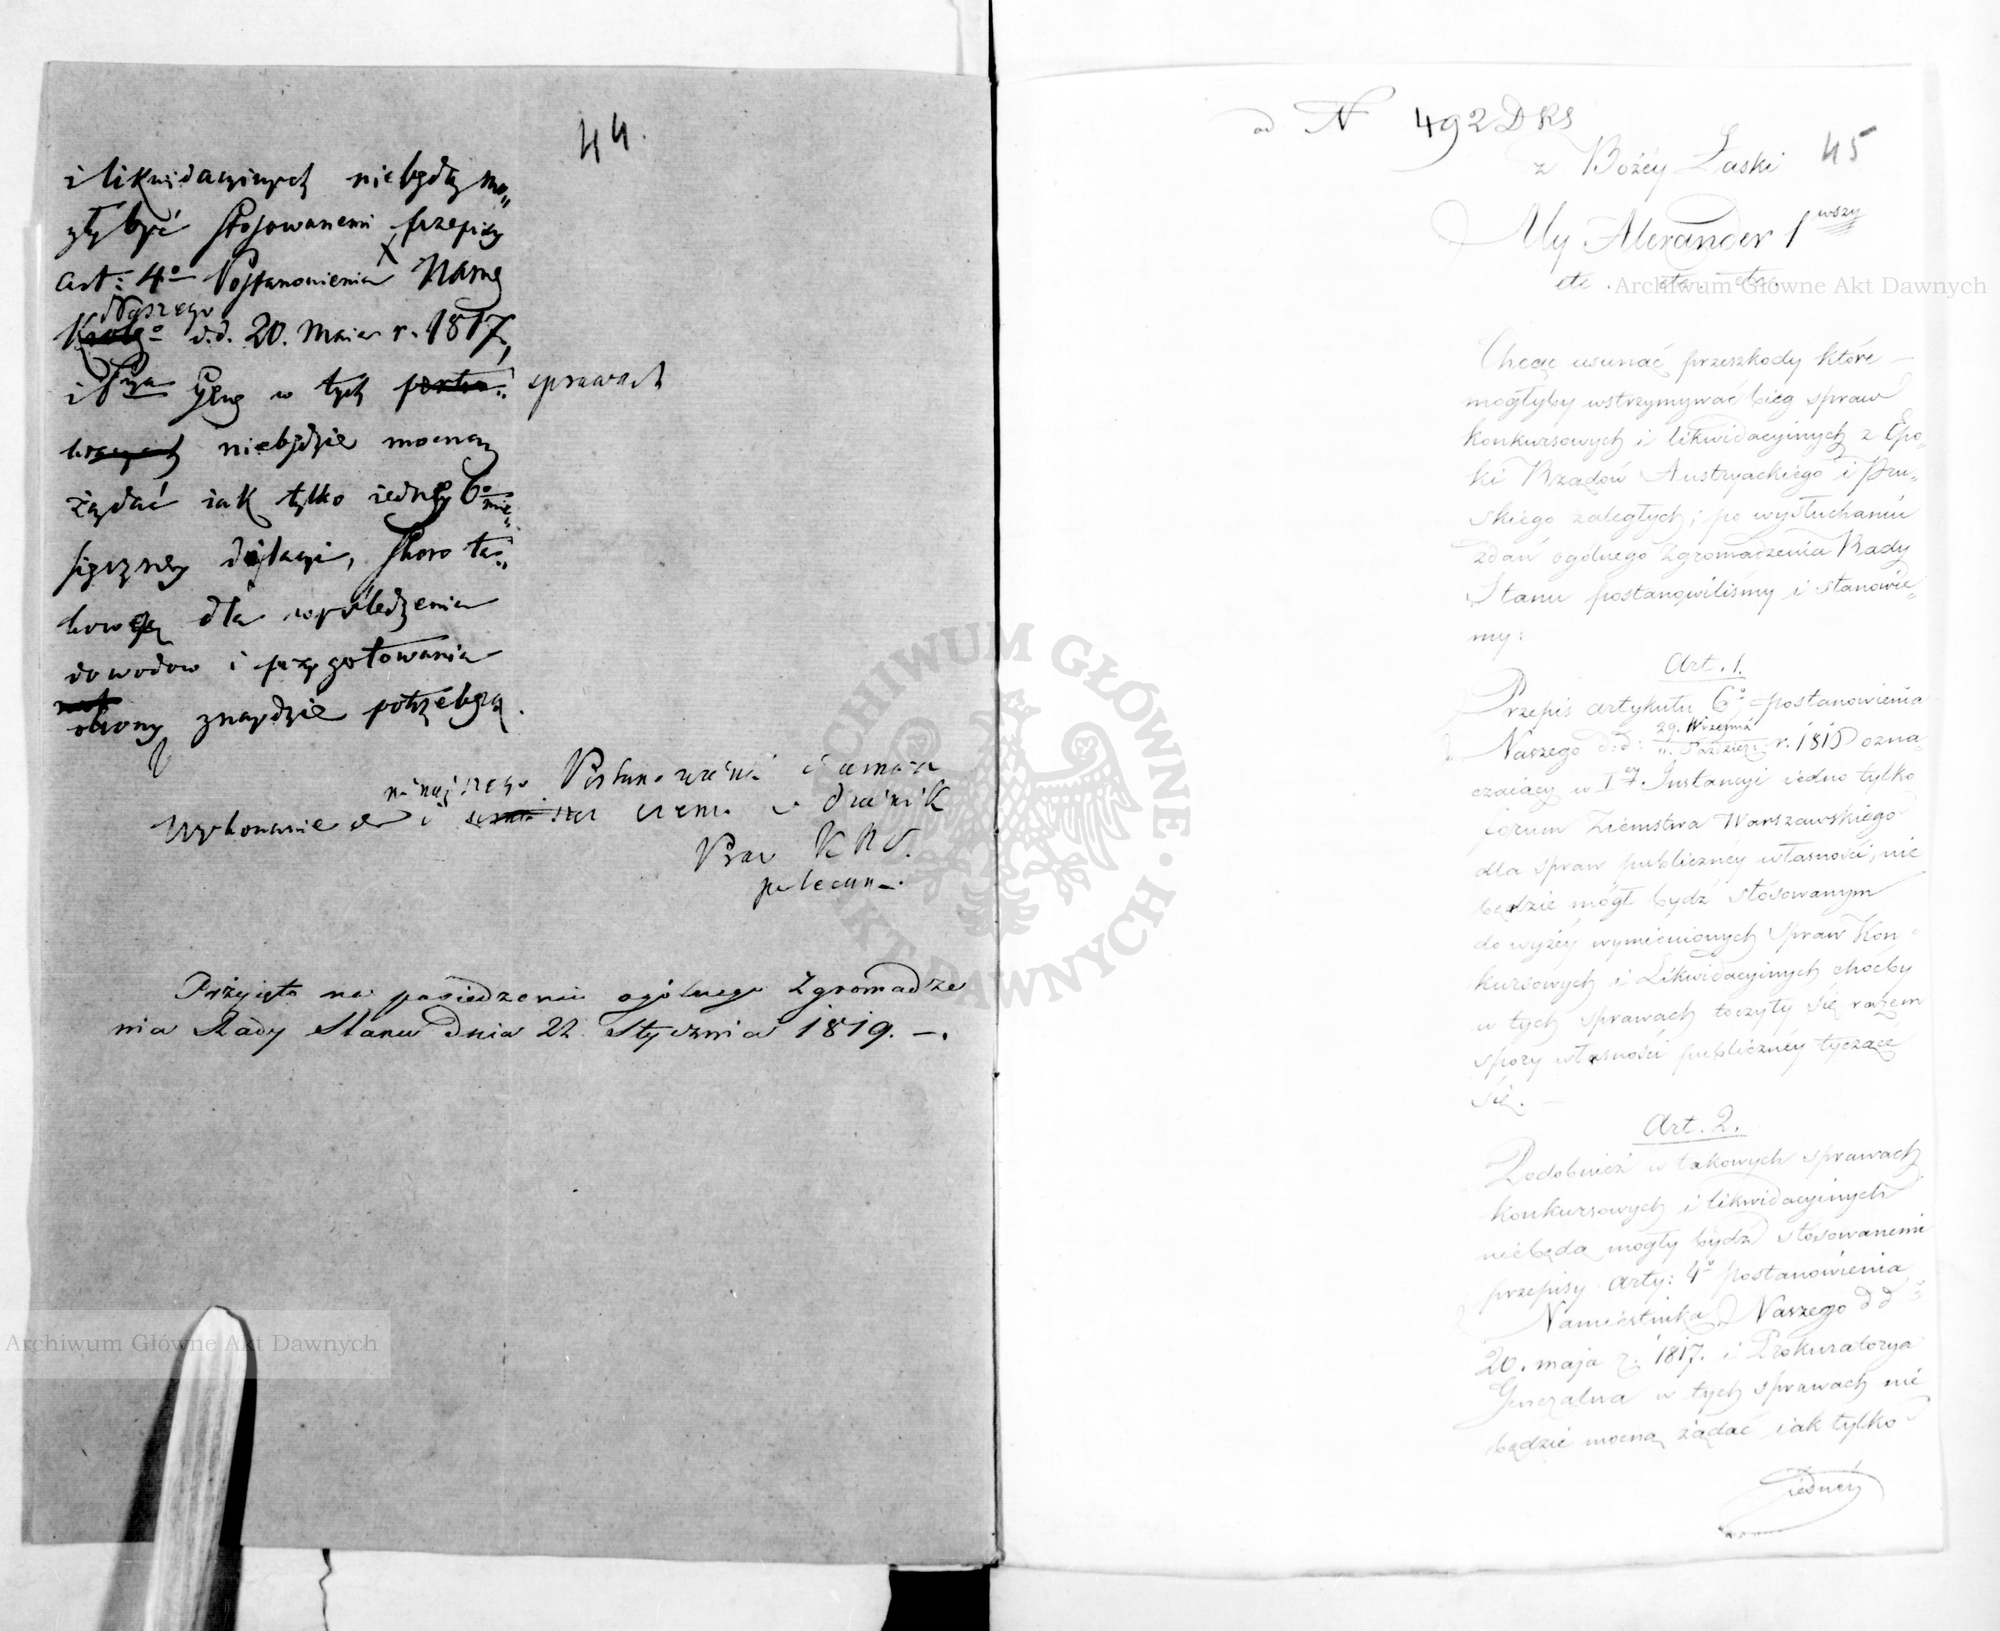 44.
i likwidacyinych niebędą mo„
gły być stosowanemi przepisy
art: 4º Postanowienia Namą
Naszego
Krolgº d.d. 20. Maia r. 1817,
i Prya Głną w tych sprawach
niebędzie mocną
żądać iak tylko iedney 6º mie„
sięczney dylacyi, skoro ta„
kową dla wyśledzenia
dowodow i przygotowania
obrony znaydzie potrzebną.
ninieyszego Postanowienia
Wykonanie i Dziennik
Praw
polecamy.
Przyięto na posiedzeniu ogólnego Zgromadze
nia Rady Stanu dnia 22. Stycznia 1819. —.
ad N 492 DRS
45
z Bożéy Łaski
My Alexander 1wszy
etc. etc. etc.
Chcąc usunąć przeszkody które —
mogłyby wstrzymywać bieg spraw
konkursowych i likwidacyinych z Epo„
ki Rządów Austryackiego i Pru„
skiego zaległych; po wysłuchaniu
zdań ogólnego Zgromadzenia Rady
Stanu postanowiliśmy i stanowie„
my:
Art. 1.
Przepis artykułu 6º postanowienia
29. Września
Naszego d:d: 11. Paździer: r. 1816 ozna„
czaiący w Iey Instancyi iedno tylko
forum Ziemstwa Warszawskiego
dla spraw publicznéy własności, nie
będzie mógł bydź stósowanym
do wyżéy wymienionych spraw Kon„
kursowych i Likwidacyinych choćby
w tych sprawach toczyły się razem
spory własności publicznéy tyczące
się. —
Art. 2.
Podobnież w takowych sprawach
konkursowych i likwidacyinych
niebędą mogły bydź stósowanemi
przepisy arty: 4º postanowienia
Namiestnika Naszego d d
20. maja r. 1817. i Prokuratorya
Generalna w tych sprawach nie
będzie mocną żądać iak tylko
iednéy
Archiwum Główne Akt Dawnych
Archiwum Główne Akt Dawnych
ARCHIWUM GŁÓWNE AKT DAWNYCH